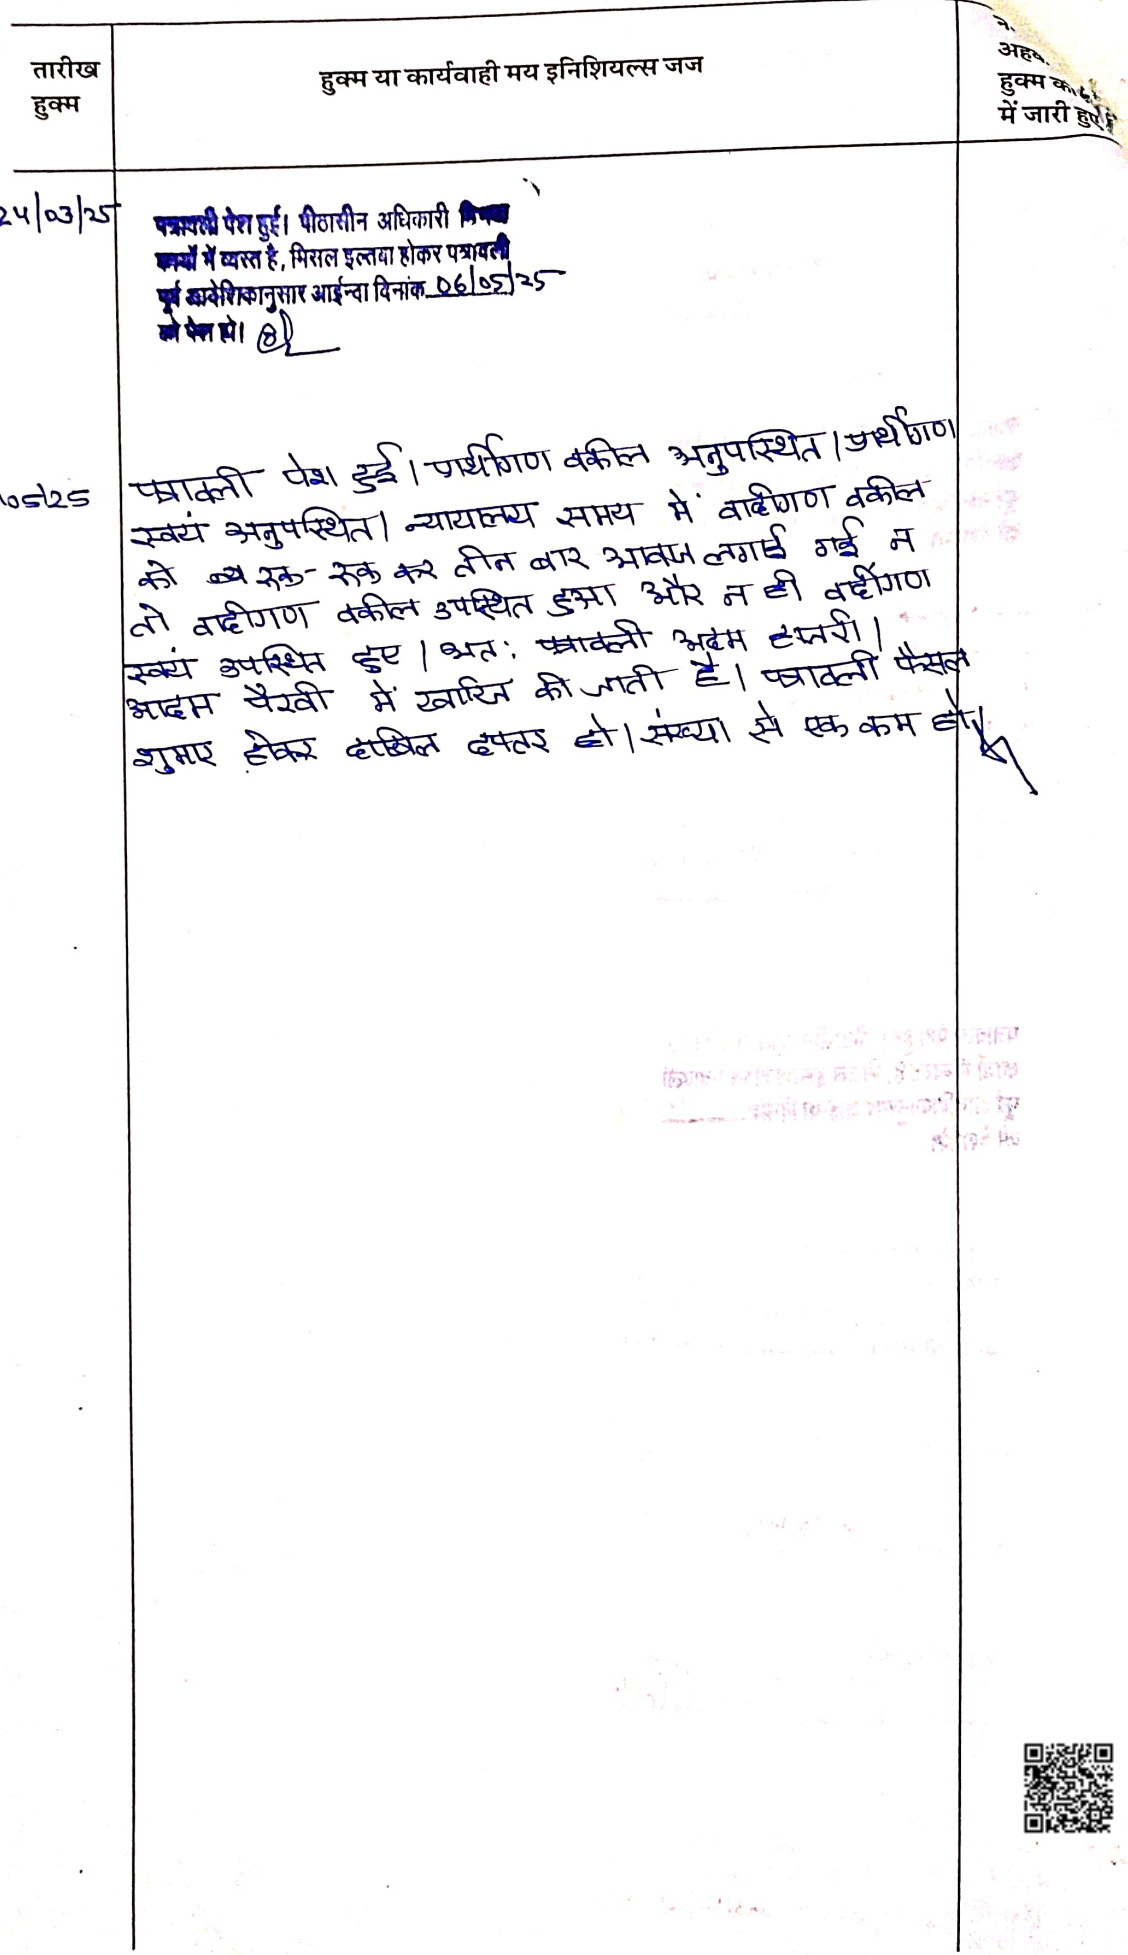 तारीख
हुक्म
हुक्म या कार्यवाही मय इनिशियल्स जज
अहव
हुक्म का
में जारी हुए
24/03/25
पत्रावली पेश हुई। पीठासीन अधिकारी
कार्यों में व्यस्त है, मिसल इल्तवा होकर पत्रावली
पूर्व आदेशिकानुसार आईन्दा दिनांक 06/05/25
को पेश हो।
05/25
पत्रावली पेश हुई। प्रार्थीगण वकील अनुपस्थित। प्रार्थीगण
स्वयं अनुपस्थित। न्यायालय समय में वादीगण वकील
को रुक-रुक कर तीन बार आवाज लगाई गई न
तो वादीगण वकील उपस्थित हुआ और न ही वादीगण
स्वयं उपस्थित हुए। अतः पत्रावली अदम हाजरी।
आदम पैरवी में खारिज की जाती है। पत्रावली फैसल
शुमार होकर दाखिल दफ्तर हो। संख्या से एक कम हो।